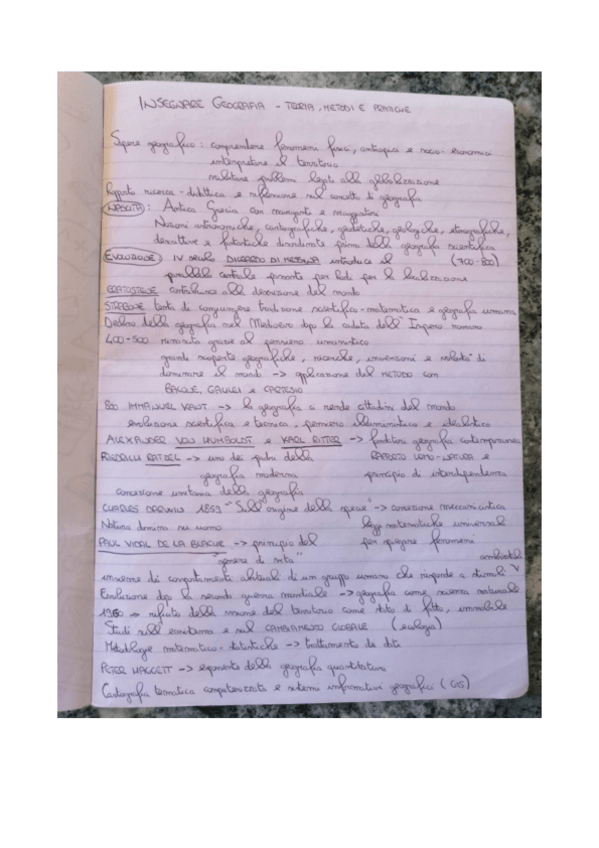 INSEGNARE GEOGRAFIA - TEORIA, METODI E PRATICHE
Sapere geografico: comprendere fenomeni fisici, antropici e socio-economici
interpretare il territorio
valutare problemi legati alla globalizzazione
Rapporto ricerca-didattica e riflessione sul concetto di geografia
NASCITA: Antica Grecia con naviganti e viaggiatori
Nozioni astronomiche, cartografiche, geodetiche, geologiche, etnografiche,
descrittive e fisiche prima della geografia scientifica
EVOLUZIONE: IV secolo DICEARCO DI MESSINA introduce il (700-800)
parallelo centrale passante per Rodi per la localizzazione
ERATOSTENE contribuisce alla descrizione del mondo
STRABONE tenta di congiungere tradizione scientifica-matematica e geografia umana
Declino della geografia nel Medioevo dopo la caduta dell'Impero romano
400-500 rinascita grazie al pensiero umanistico
grandi scoperte geografiche, ricerche, invenzioni e volontà di
dominare il mondo -> applicazione del METODO con
BACONE, GALILEI e CARTESIO
800 IMMANUEL KANT -> la geografia ci rende cittadini del mondo
evoluzione scientifica e tecnica, pensiero illuministico e idealistico
ALEXANDER VON HUMBOLDT e KARL RITTER -> fonditori geografia contemporanea
FRIEDRICH RATZEL -> uno dei padri della RAPPORTO UOMO-NATURA e
geografia moderna principio di interdipendenza
concezione unitaria della geografia
CHARLES DARWIN 1859 "Sull'origine della specie" -> concezione meccanicistica
Natura domina su uomo leggi matematiche universali
PAUL VIDAL DE LA BLACHE -> principio del per spiegare fenomeni
"genere di vita" ambientali
insieme dei comportamenti abituali di un gruppo umano che risponde a stimoli
Evoluzione dopo la seconda guerra mondiale -> geografia come scienza naturale
1960 -> rifiuto della visione del territorio come dato di fatto, immobile
Studi sull'ecosistema e sul CAMBIAMENTO GLOBALE (ecologia)
Metodologie matematico-statistiche -> trattamento dei dati
PETER HAGGETT -> esponente della geografia quantitativa
Cartografia tematica computerizzata e sistemi informativi geografici (GIS)